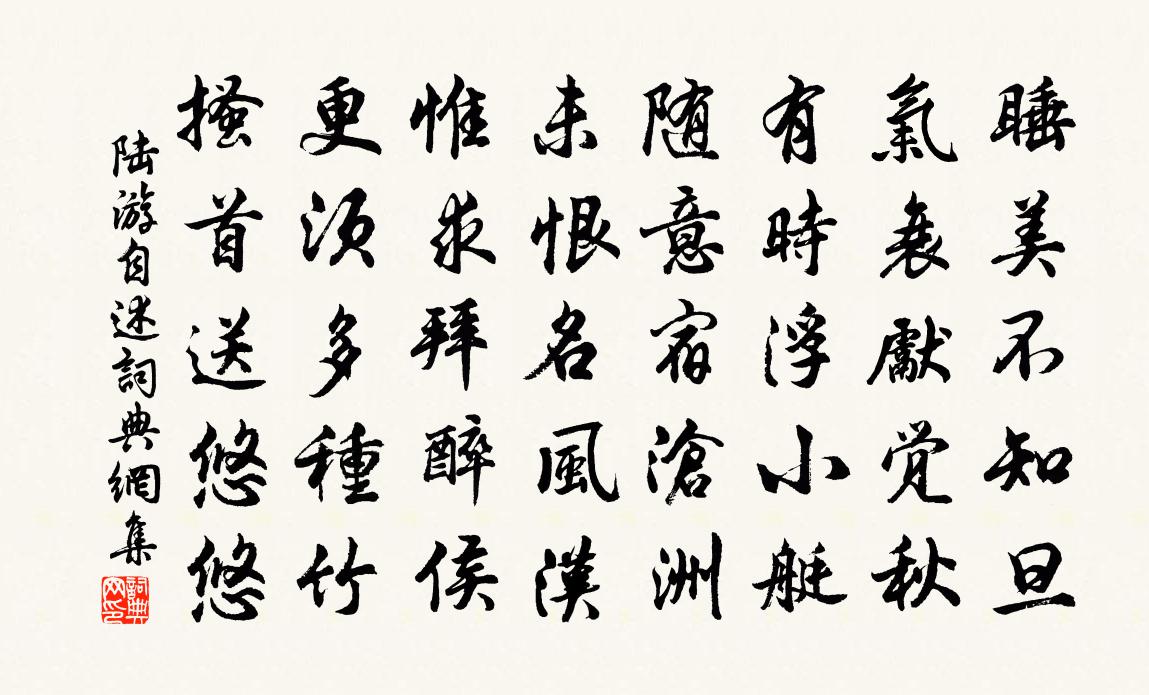 睡美不知旦
氣衰獻覺秋
有時浮小艇
随意宿滄洲
未恨名風漢
惟求拜醉侯
更须多種竹
搔首送悠悠
陸游自述詞典網集
詞典网印